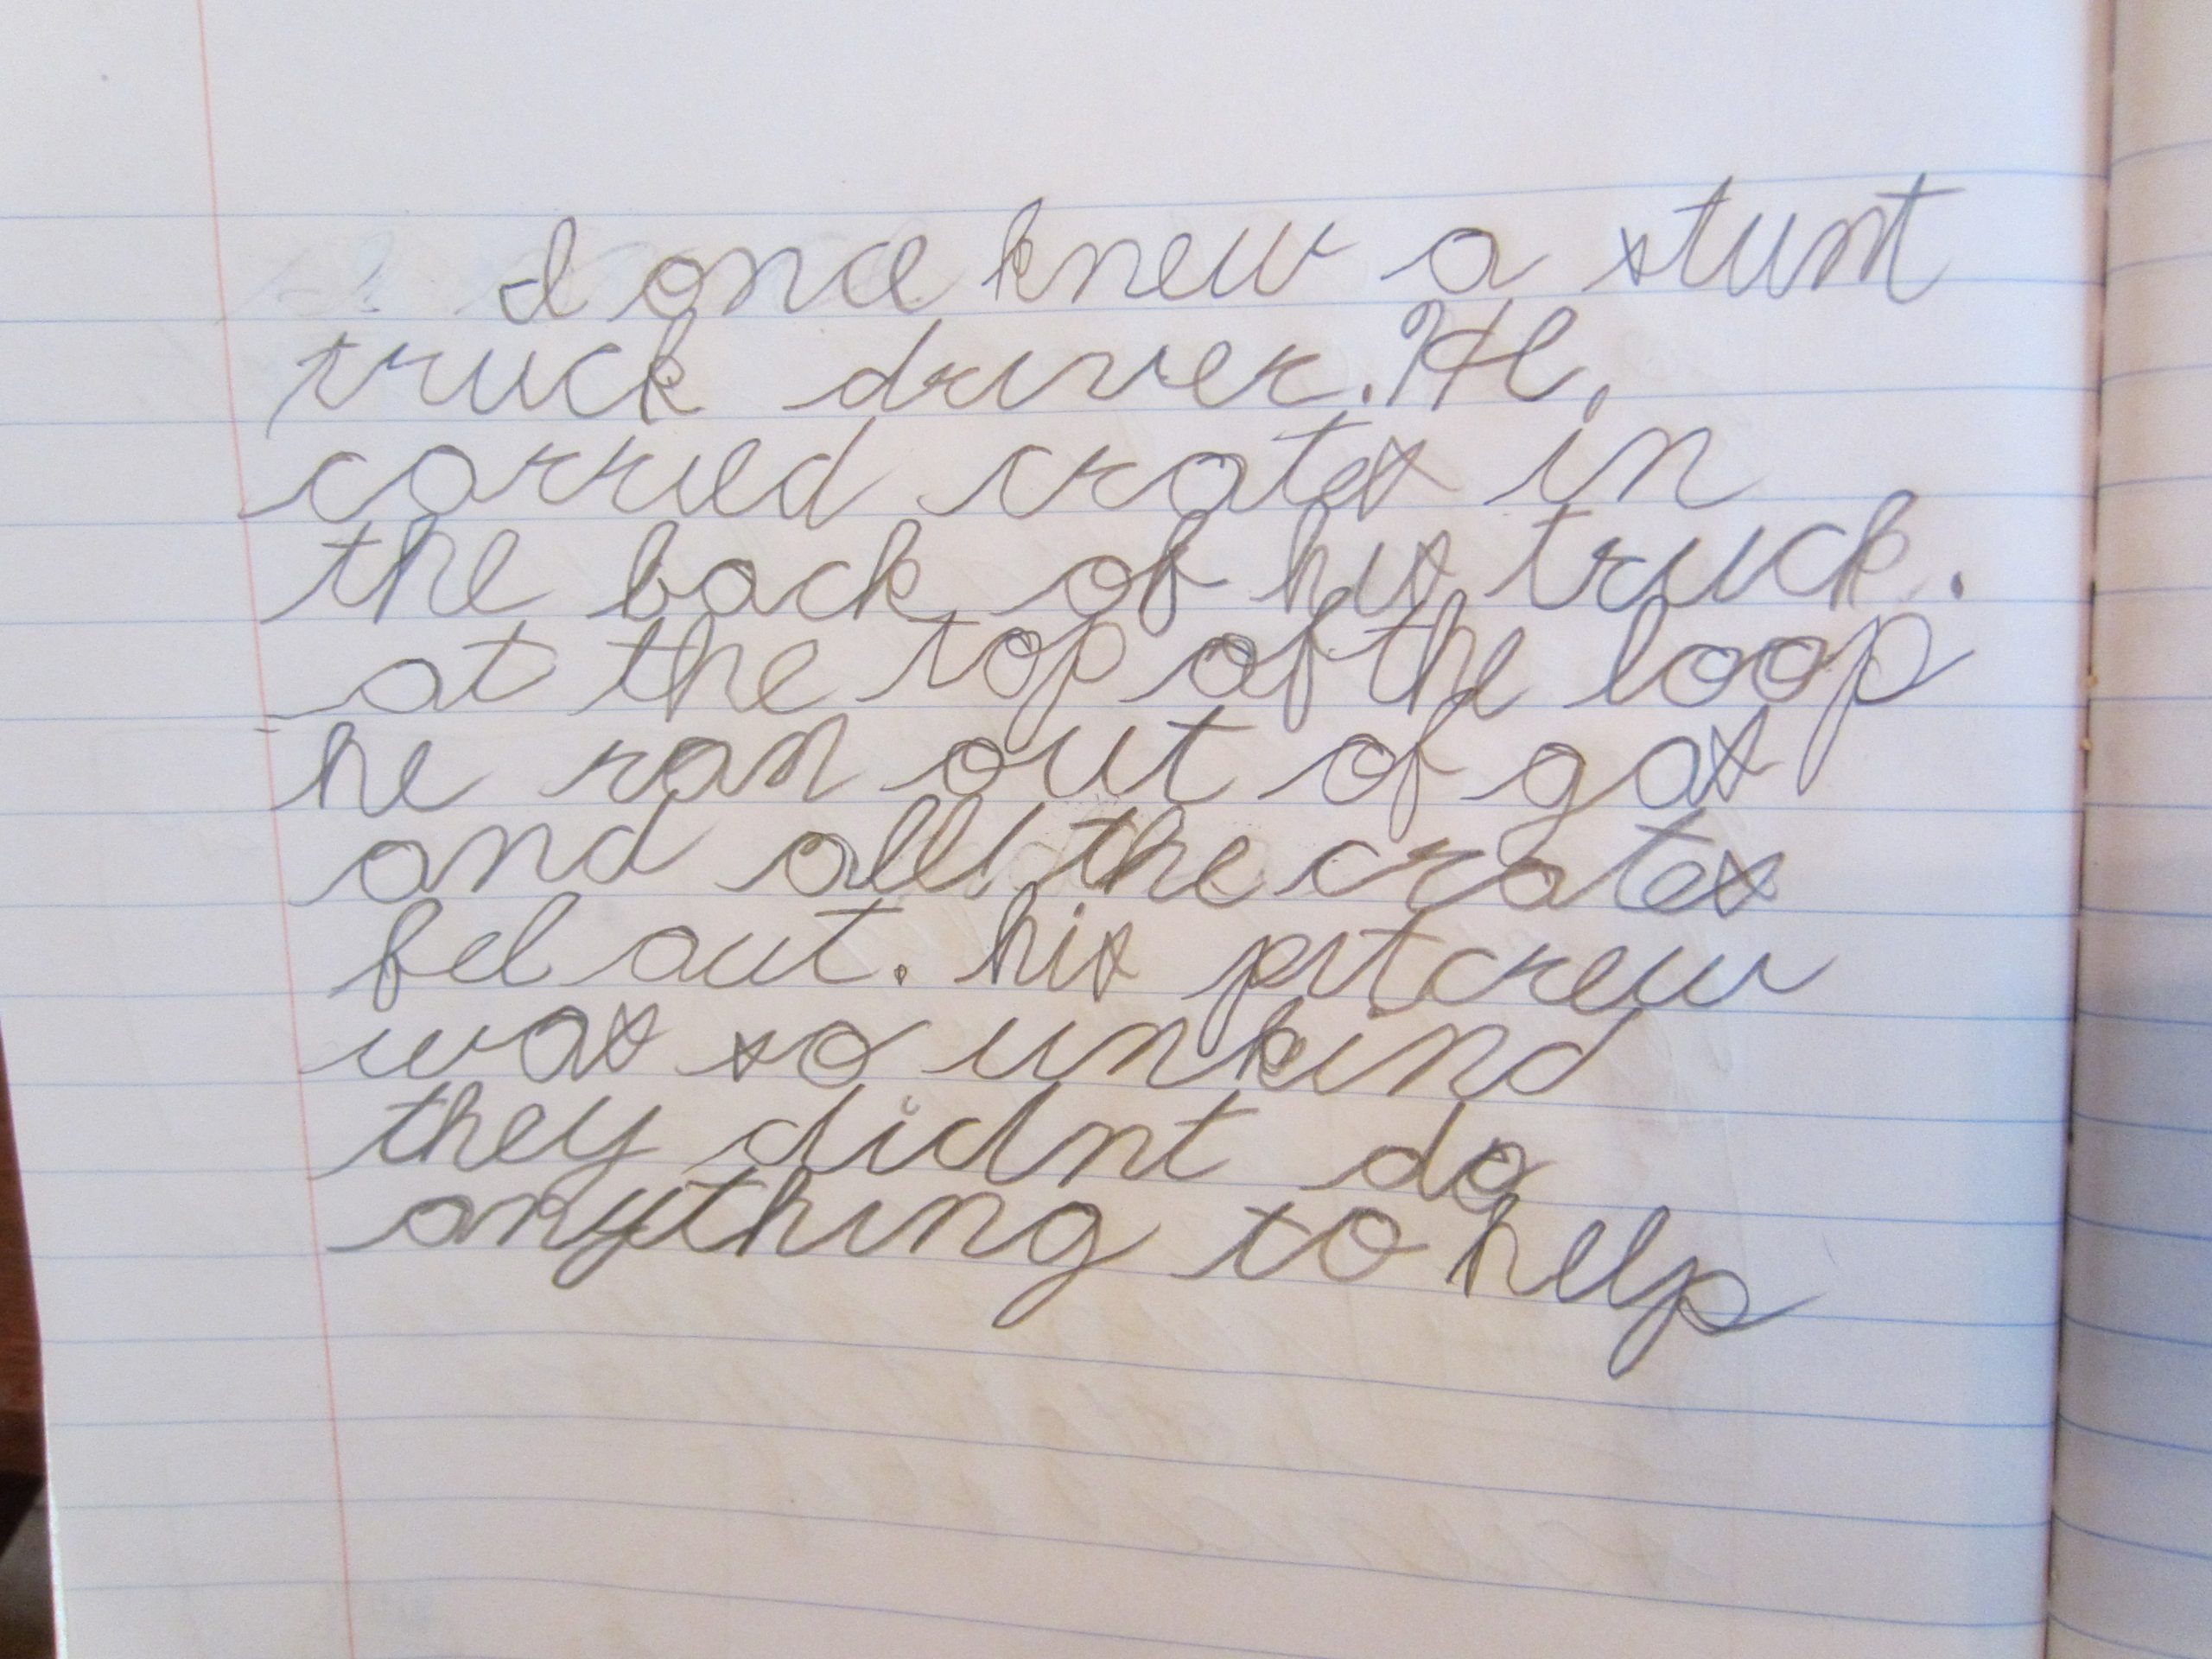 I once knew a stunt
truck driver. He
carried crates in
the back of his truck.
at the top of the loop
he ran out of gas
and all the crates
fel out. his pitcrew
was so unkind
they didnt do
anything to help